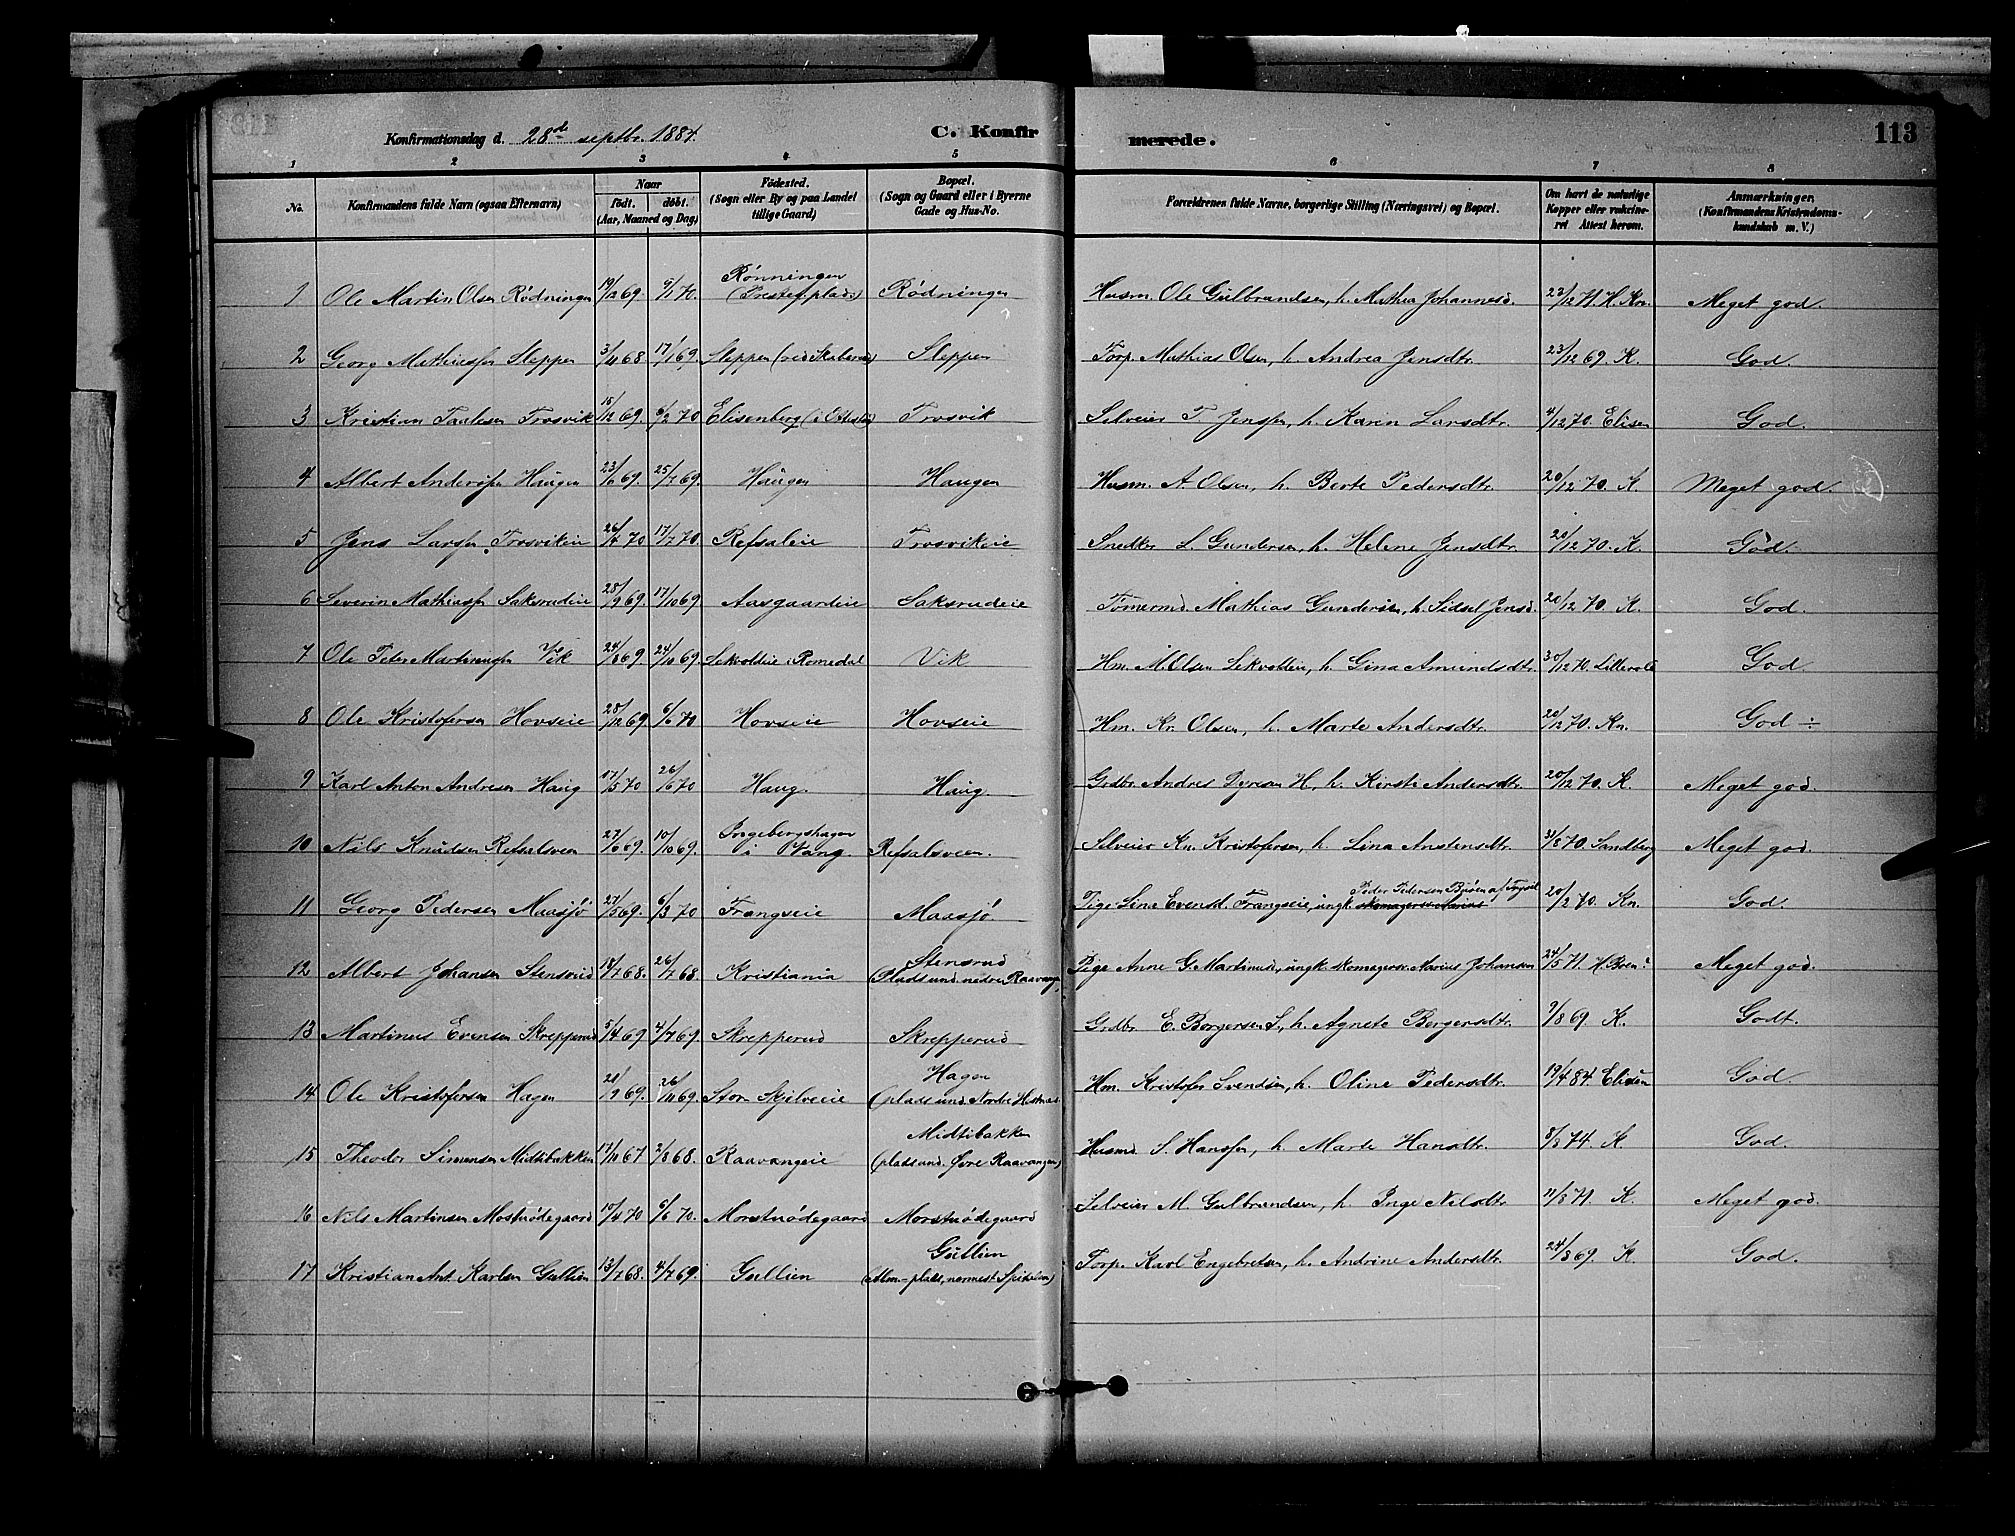 Konfirmationsdag d. 28de septbr. 1884. C. Konfirmerede. 113
1 2 3 4 5 6 7 8
No. Konfirmandens fulde Navn (ogsaa Efternavn) Naar født. døbt. (Aar, Maaned og Dag) Fødested. (Sogn eller By og paa Landet tillige Gaard) Bopæl. (Sogn og Gaard eller i Byerne Gade og Hus-No. Forældrenes fulde Navne, borgerlige Stilling (Næringsvei) og Bopæl. Om havt de naturlige Kopper eller vakcineret. Attest herom. Anmærkninger. (Konfirmandens Kristendomskundskab m. V.)
1 Ole Martin Olsen Rødningen 19/12 69 9/1 70 Rønningen (Prestef. plads) Rødningen Husm. Ole Gulbrandsen, h. Mathea Johannesd. 23/12 71. H. Kn. Meget god.
2 Georg Mathiassen Sleppen 3/11 68 17/1 69. Sleppen Sleppen Torp. Mathias Olsen, h. Andrea Jensdtr. 23/12 69. K. God.
3 Kristian Paulsen Trosvik 15/12 69. 6/2 70 Elisenberg (i Ottestad) Trosvik Selveier P. Jenssen, h. Karin Larsdtr. 4/12 70. Elisen God.
4 Albert Anderssen Haugen 23/6 69. 25/7 69. Haugen Haugen Husm. A. Olsen, h. Berte Pedersdtr. 20/12 70. K. Meget god.
5 Jens Larssen Trosvikeie 26/4 70 17/7 70. Refsaleie Trosvikeie Snedker L. Gundersen, h. Helene Jensdtr. 20/12 70. K. God.
6 Severin Mathiassen Saksrudeie 28/9 69. 17/10 69 Aasgaardeie Saksrudeie Tømermd. Mathias Gundersen, h. Sidsel Jensd. 20/12 70. K. God.
7 Ole Peter Martinussen Vik 24/8 69 24/10 69. Lekvoldeie i Romedal Vik Hm. M. Olsen Lekvolleie, h. Gina Amundsdtr. 30/12 70. God
8 Ole Kristofersen Hovseie 28/12 69. 6/6 70 Hovseie Hovseie Hm. Kr. Olsen, h. Marte Andersdtr. 20/12 70. Kn. God ÷
9 Karl Anton Andresen Haug 17/5 70 26/6 70 Haug. Haug. Grdbr. Andres Pedersen H., h. Kirsti Andersdtr. 20/12 70. K. Meget god.
10 Nils Knudsen Refsalsveen 27/6 69. 10/10 69. Ingebergshagen i Vang. Refsalsveen. Selveier Kn. Kristofersen, h. Lina Anstensdtr. 31/8 70. Sandberg Meget god.
11 Georg Pedersen Maasjø 27/5 69. 6/3 70 Frangseie Maasjø Pige Lina Evensd. Frangseie, ungk. Peder Pedersen af Trysil 20/2 70. Kn. God.
12 Albert Johansen Stensrud 18/7 68. 26/7 68. Kristiania Stensrud (Plads und. nedre Raavangen) Pige Anne G. Martinsd., ungk. skomagersv. Marius Johansen 24/5 71. Meget god.
13 Martinus Evensen Skrepperud 5/4 69 4/7 69. Skrepperud Skrepperud Grdbr. E. Borgersen S., h. Agnete Borgersdtr. 9/8 69. K. Godt.
14 Ole Kristofersen Hagen 21/9 69. 26/11 69. Stor Skjelveie Hagen (plads und. Nordre Hestnæs) Hm. Kristofer Svendsen, h. Oline Pedersdtr. 19/4 84. Elisen God.
15 Theodor Simensen Midtibakken 17/11 67 2/8 68. Raavangeie Midtibakken (plads und. Øvre Raavangen) Husmd. S. Hanssen, h. Marte Hansdtr. 8/8 74. K. God.
16 Nils Martinsen Morstuødegaard 10/4 70 6/6 70. Morstuødegaard Morstuødegaard Selveier M. Gulbrandsen, h. Inge Nilsdtr. 11/8 71. K. Meget god.
17 Kristian Ant. Karlsen Gullien 13/7 68. 4/7 69. Gullien Gullien (Alm-plads, nermest ) Torp. Karl Engebretsen, h. Andrine Andersdtr. 24/8 69. K. God.